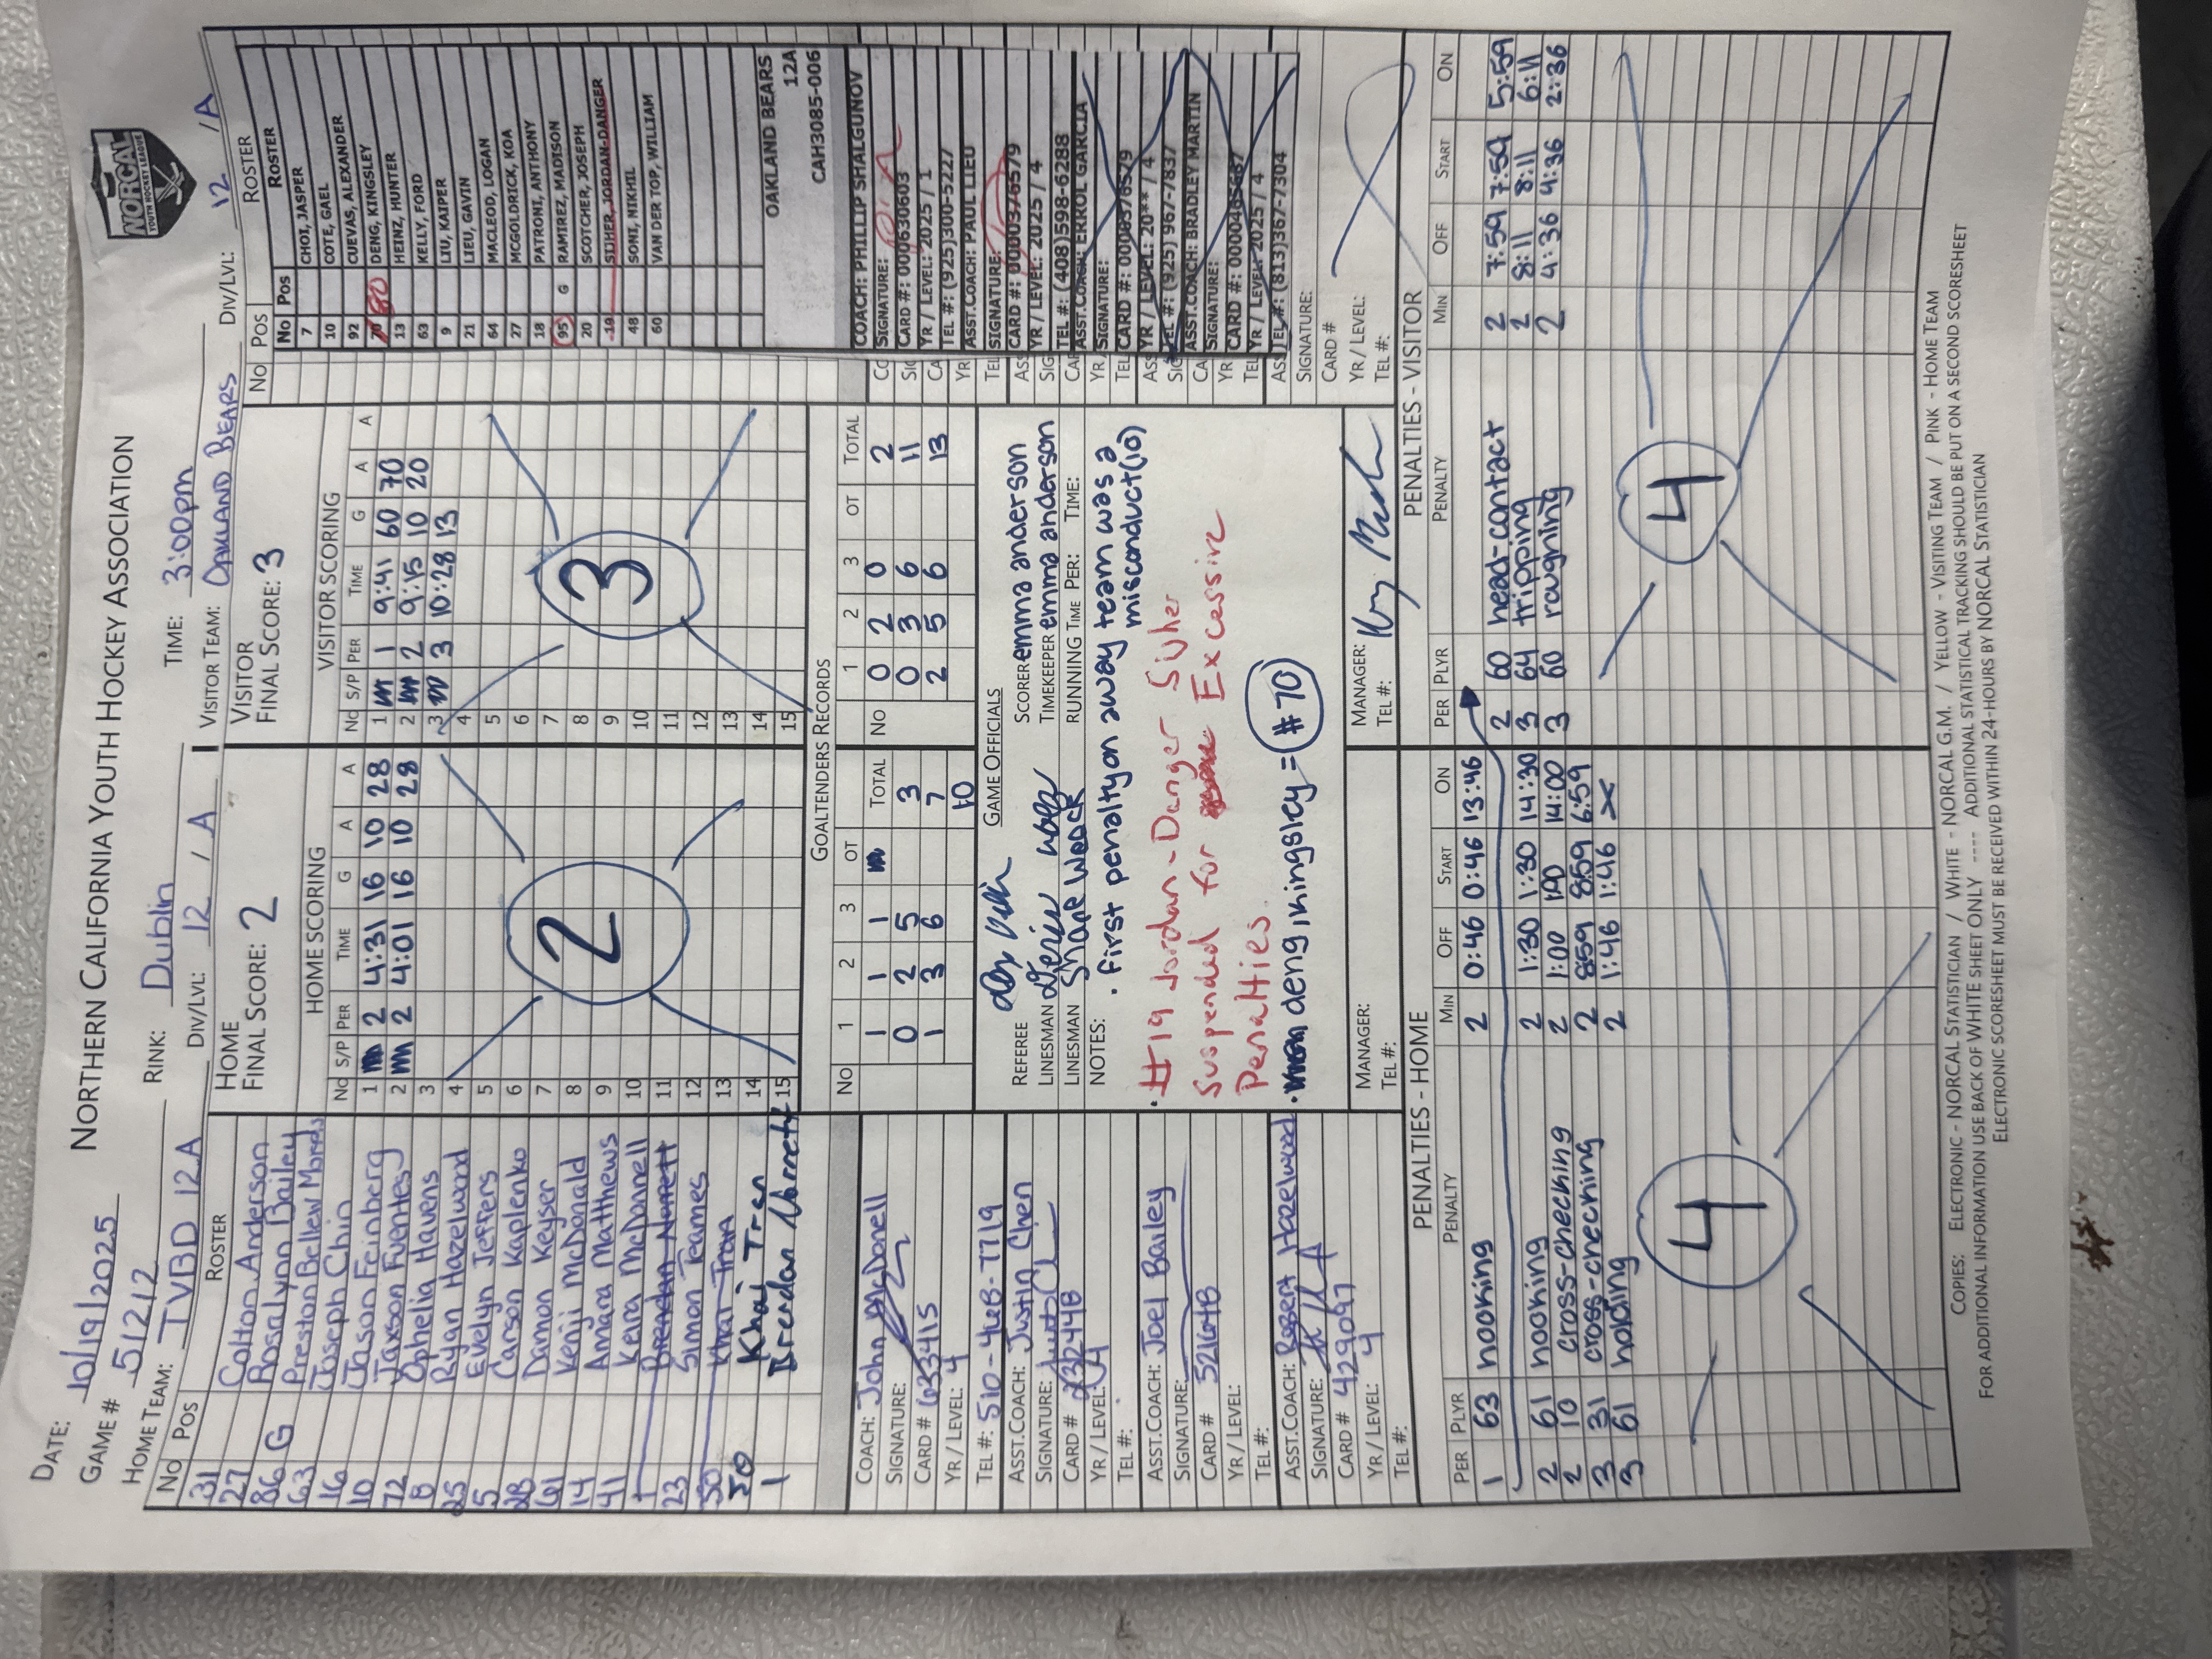 NORTHERN CALIFORNIA YOUTH HOCKEY ASSOCIATION
NORCAL
YOUTH HOCKEY LEAGUE
DATE: 10/19/2025
GAME # 51212 RINK: Dublin TIME: 3:00pm
HOME TEAM: TVBD 12A DIV/LVL: 12 / A VISITOR TEAM: OAKLAND BEARS DIV/LVL: 12 / A
No Pos ROSTER
31 Colton Anderson
27 Rosalynn Bailey
86 G Preston Bellew Morris
63 Joseph Chin
16 Jason Feinberg
10 Jaxson Fuentes
72 Ophelia Havens
8 Ryan Hazelwood
25 Evelyn Jeffers
5 Carson Kaplenko
28 Damon Keyser
61 Kenji McDonald
14 Anjara Matthews
41 Keira McDonnell
1 Brendan Norrett
23 Simon Teames
50 Khai Tran
50 Khai Tran
1 Brendan Norrett
HOME
FINAL SCORE: 2
HOME SCORING
No S/P PER TIME G A A
1 2 4:31 16 10 28
2 2 4:01 16 10 28
3
4
5
6
7
8
9
10
11
12
13
14
15
2
VISITOR
FINAL SCORE: 3
VISITOR SCORING
No S/P PER TIME G A A
1 1 9:41 60 70
2 2 9:15 10 20
3 3 10:28 13
4
5
6
7
8
9
10
11
12
13
14
15
3
No Pos ROSTER
No Pos Roster
7 CHOI, JASPER
10 COTE, GAEL
92 CUEVAS, ALEXANDER
70 80 DENG, KINGSLEY
13 HEINZ, HUNTER
63 KELLY, FORD
9 LIU, KAIPER
21 LIEU, GAVIN
64 MACLEOD, LOGAN
27 MCGOLDRICK, KOA
18 PATRONI, ANTHONY
95 G RAMIREZ, MADISON
20 SCOTCHER, JOSEPH
19 SIJHER, JORDAN-DANGER
48 SONI, NIKHIL
60 VAN DER TOP, WILLIAM
OAKLAND BEARS
12A
CAH3085-006
GOALTENDERS RECORDS
No 1 2 3 OT TOTAL
1 1 1 3
0 2 5 7
1 3 6 10
No 1 2 3 OT TOTAL
0 2 0 2
0 3 6 11
2 5 6 13
COACH: John McDonell
SIGNATURE:
CARD # 633415
YR / LEVEL: 4
TEL #: 510-468-7719
ASST.COACH: Justin Chen
SIGNATURE:
CARD # 232448
YR / LEVEL: 4
TEL #:
ASST.COACH: Joel Bailey
SIGNATURE:
CARD # 521648
YR / LEVEL:
TEL #:
ASST.COACH: Robert Hazelwood
SIGNATURE:
CARD # 429097
YR / LEVEL: 4
TEL #:
GAME OFFICIALS
REFEREE SCORER emma anderson
LINESMAN TIMEKEEPER emma anderson
LINESMAN Shane RUNNING TIME PER: TIME:
NOTES: . First penalty on away team was a
misconduct (10)
. #19 Jordan-Danger Sijher
Suspended for Excessive
Penalties.
. deng, kingsley = #70
MANAGER:
TEL #:
MANAGER:
TEL #:
COACH: PHILLIP SHALGUNOV
SIGNATURE:
CARD #: 000630603
YR / LEVEL: 2025 / 1
TEL #: (925)300-5227
ASST.COACH: PAUL LIEU
SIGNATURE:
CARD #: 0000376579
YR / LEVEL: 2025 / 4
TEL #: (408)598-6288
ASST.COACH: ERROL GARCIA
SIGNATURE:
CARD #: 0000376579
YR / LEVEL: 20** / 4
TEL #: (925) 967-7837
ASST.COACH: BRADLEY MARTIN
SIGNATURE:
CARD #:
YR / LEVEL: 2025 / 4
TEL #: (813)367-7304
SIGNATURE:
CARD #
YR / LEVEL:
TEL #:
PENALTIES - HOME
PER PLYR PENALTY MIN OFF START ON
1 63 hooking 2 0:46 0:46 13:46
2 61 hooking 2 1:30 1:30 14:30
2 10 cross-checking 2 1:00 1:00 14:00
3 31 cross-checking 2 8:59 8:59 6:59
3 61 holding 2 1:46 1:46 X
4
PENALTIES - VISITOR
PER PLYR PENALTY MIN OFF START ON
2 60 head-contact 2 7:59 7:59 5:59
3 64 tripping 2 8:11 8:11 6:11
3 60 roughing 2 4:36 4:36 2:36
4
COPIES: ELECTRONIC - NORCAL STATISTICIAN / WHITE - NORCAL G.M. / YELLOW - VISITING TEAM / PINK - HOME TEAM
FOR ADDITIONAL INFORMATION USE BACK OF WHITE SHEET ONLY ---- ADDITIONAL STATISTICAL TRACKING SHOULD BE PUT ON A SECOND SCORESHEET
ELECTRONIC SCORESHEET MUST BE RECEIVED WITHIN 24-HOURS BY NORCAL STATISTICIAN